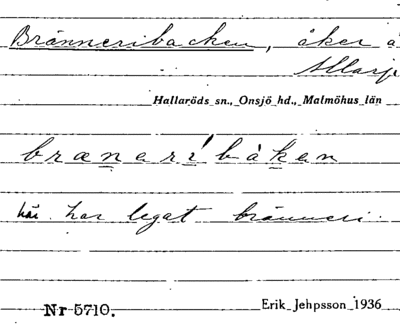 Bränneribacken, åker å
Allarp
Hallaröds sn., Onsjö hd., Malmöhus län
brænaribåken
här har legat bränneri.
Nr 5710.
Erik Jehpsson 1936